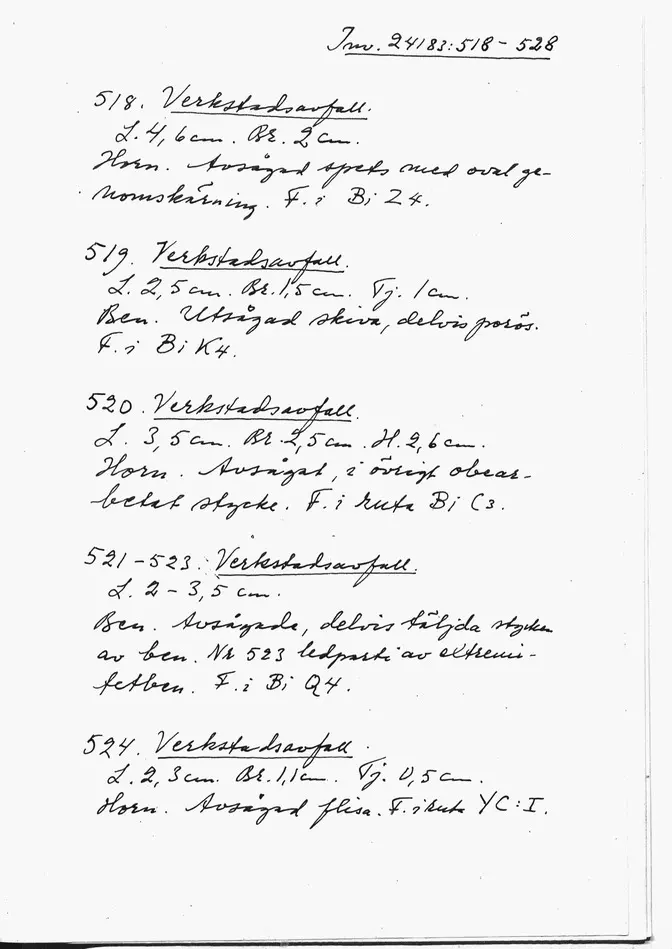 Inv. 24183:518-528
518. Verkstadsavfall.
L. 4,6 cm. Br. 2 cm.
Horn. Avsågad spets med oval ge-
nomskärning. F. i Bi Z4.
519. Verkstadsavfall.
L. 2,5 cm. Br. 1,5 cm. Tj. 1 cm.
Ben. Utsågad skiva, delvis porös.
F. i Bi K4.
520. Verkstadsavfall.
L. 3,5 cm. Br. 2,5 cm. H. 2,6 cm.
Horn. Avsågat, i övrigt obear-
betat stycke. F. i ruta Bi C3.
521-523. Verkstadsavfall.
L. 2-3,5 cm.
Ben. Avsågade, delvis täljda stycken
av ben. Nr 523 ledparti av extremi-
tetben. F. i Bi Q4.
524. Verkstadsavfall.
L. 2,3 cm. Br. 1,1 cm. Tj. 0,5 cm.
Horn. Avsågad flisa. F. i ruta YC:I.